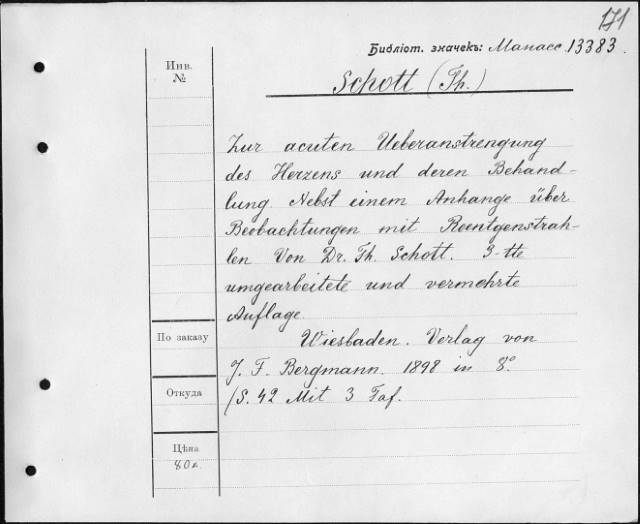 171
Библіот. значекъ: Манасс 13383.
Инв.
№
Schott (Th.)
Zur acuten Ueberanstrengung
des Herzens und deren Behand-
lung Nebst einem Anhange über
Beobachtungen mit Roentgenstrah-
len Von Dr. Th. Schott. 3-tte
umgearbeitete und vermehrte
Auflage.
Wiesbaden. Verlag von
По заказу
J. F. Bergmann. 1898 in 8.°
Откуда
/S. 42 Mit 3 Taf.
Цѣна
80к.